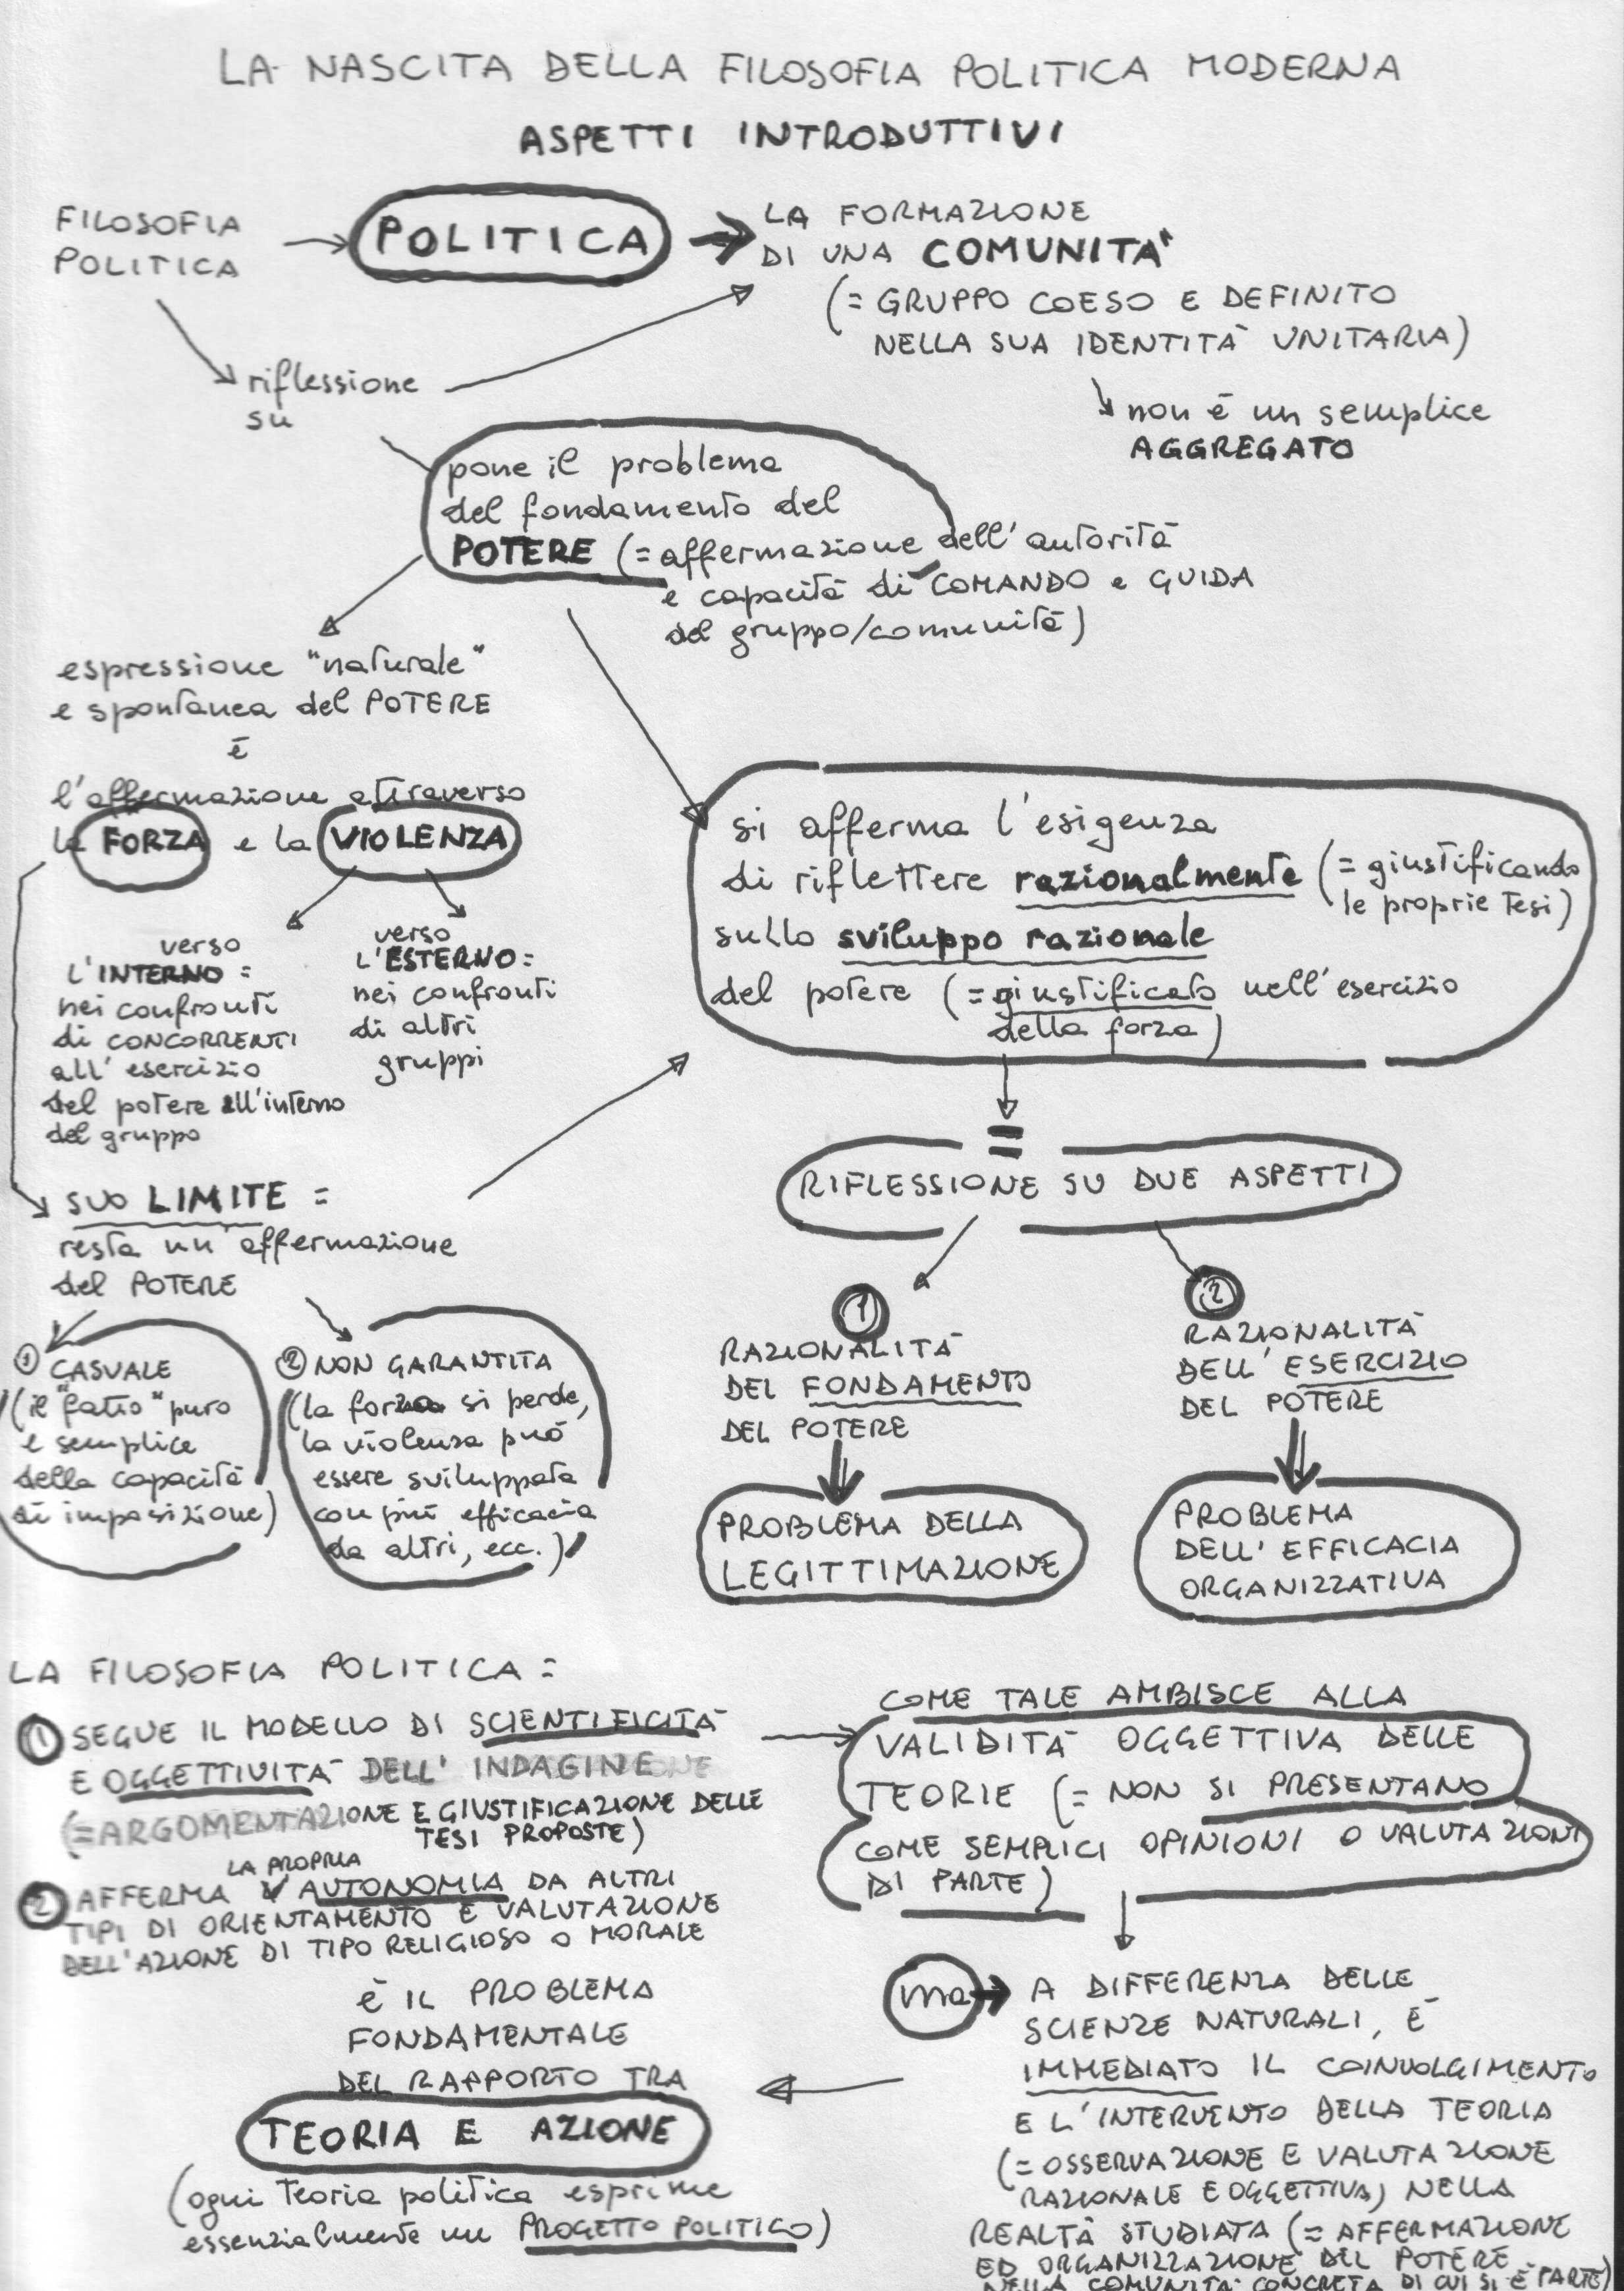 LA NASCITA DELLA FILOSOFIA POLITICA MODERNA
ASPETTI INTRODUTTIVI
FILOSOFIA
POLITICA
POLITICA
LA FORMAZIONE
DI UNA COMUNITÀ
(= GRUPPO COESO E DEFINITO
NELLA SUA IDENTITÀ UNITARIA)
non è un semplice
AGGREGATO
riflessione
su
pone il problema
del fondamento del
POTERE (= affermazione dell'autorità
e capacità di COMANDO e GUIDA
del gruppo/comunità)
espressione "naturale"
e spontanea del POTERE
è
l'affermazione attraverso
la FORZA e la VIOLENZA
verso
L'INTERNO =
nei confronti
di CONCORRENTI
all'esercizio
del potere all'interno
del gruppo
verso
L'ESTERNO =
nei confronti
di altri
gruppi
si afferma l'esigenza
di riflettere razionalmente (= giustificando
le proprie tesi)
sullo sviluppo razionale
del potere (= giustificato nell'esercizio
della forza)
=
RIFLESSIONE SU DUE ASPETTI
SUO LIMITE =
resta un'affermazione
del POTERE
① CASUALE
(il "fatto" puro
e semplice
della capacità
di imposizione)
② NON GARANTITA
(la forza si perde,
la violenza può
essere sviluppata
con più efficacia
da altri, ecc.)
1
RAZIONALITÀ
DEL FONDAMENTO
DEL POTERE
PROBLEMA DELLA
LEGITTIMAZIONE
2
RAZIONALITÀ
DELL'ESERCIZIO
DEL POTERE
PROBLEMA
DELL'EFFICACIA
ORGANIZZATIVA
LA FILOSOFIA POLITICA =
① SEGUE IL MODELLO DI SCIENTIFICITÀ
E OGGETTIVITÀ DELL'INDAGINE
(= ARGOMENTAZIONE E GIUSTIFICAZIONE DELLE
TESI PROPOSTE)
LA PROPRIA
② AFFERMA AUTONOMIA DA ALTRI
TIPI DI ORIENTAMENTO E VALUTAZIONE
DELL'AZIONE DI TIPO RELIGIOSO O MORALE
COME TALE AMBISCE ALLA
VALIDITÀ OGGETTIVA DELLE
TEORIE (= NON SI PRESENTANO
COME SEMPLICI OPINIONI O VALUTAZIONI
DI PARTE)
ma
A DIFFERENZA DELLE
SCIENZE NATURALI, È
IMMEDIATO IL COINVOLGIMENTO
E L'INTERVENTO DELLA TEORIA
(= OSSERVAZIONE E VALUTAZIONE
RAZIONALE E OGGETTIVA) NELLA
REALTÀ STUDIATA (= AFFERMAZIONE
ED ORGANIZZAZIONE DEL POTERE
NELLA COMUNITÀ CONCRETA DI CUI SI È PARTE)
È IL PROBLEMA
FONDAMENTALE
DEL RAPPORTO TRA
TEORIA E AZIONE
(ogni teoria politica esprime
essenzialmente un PROGETTO POLITICO)